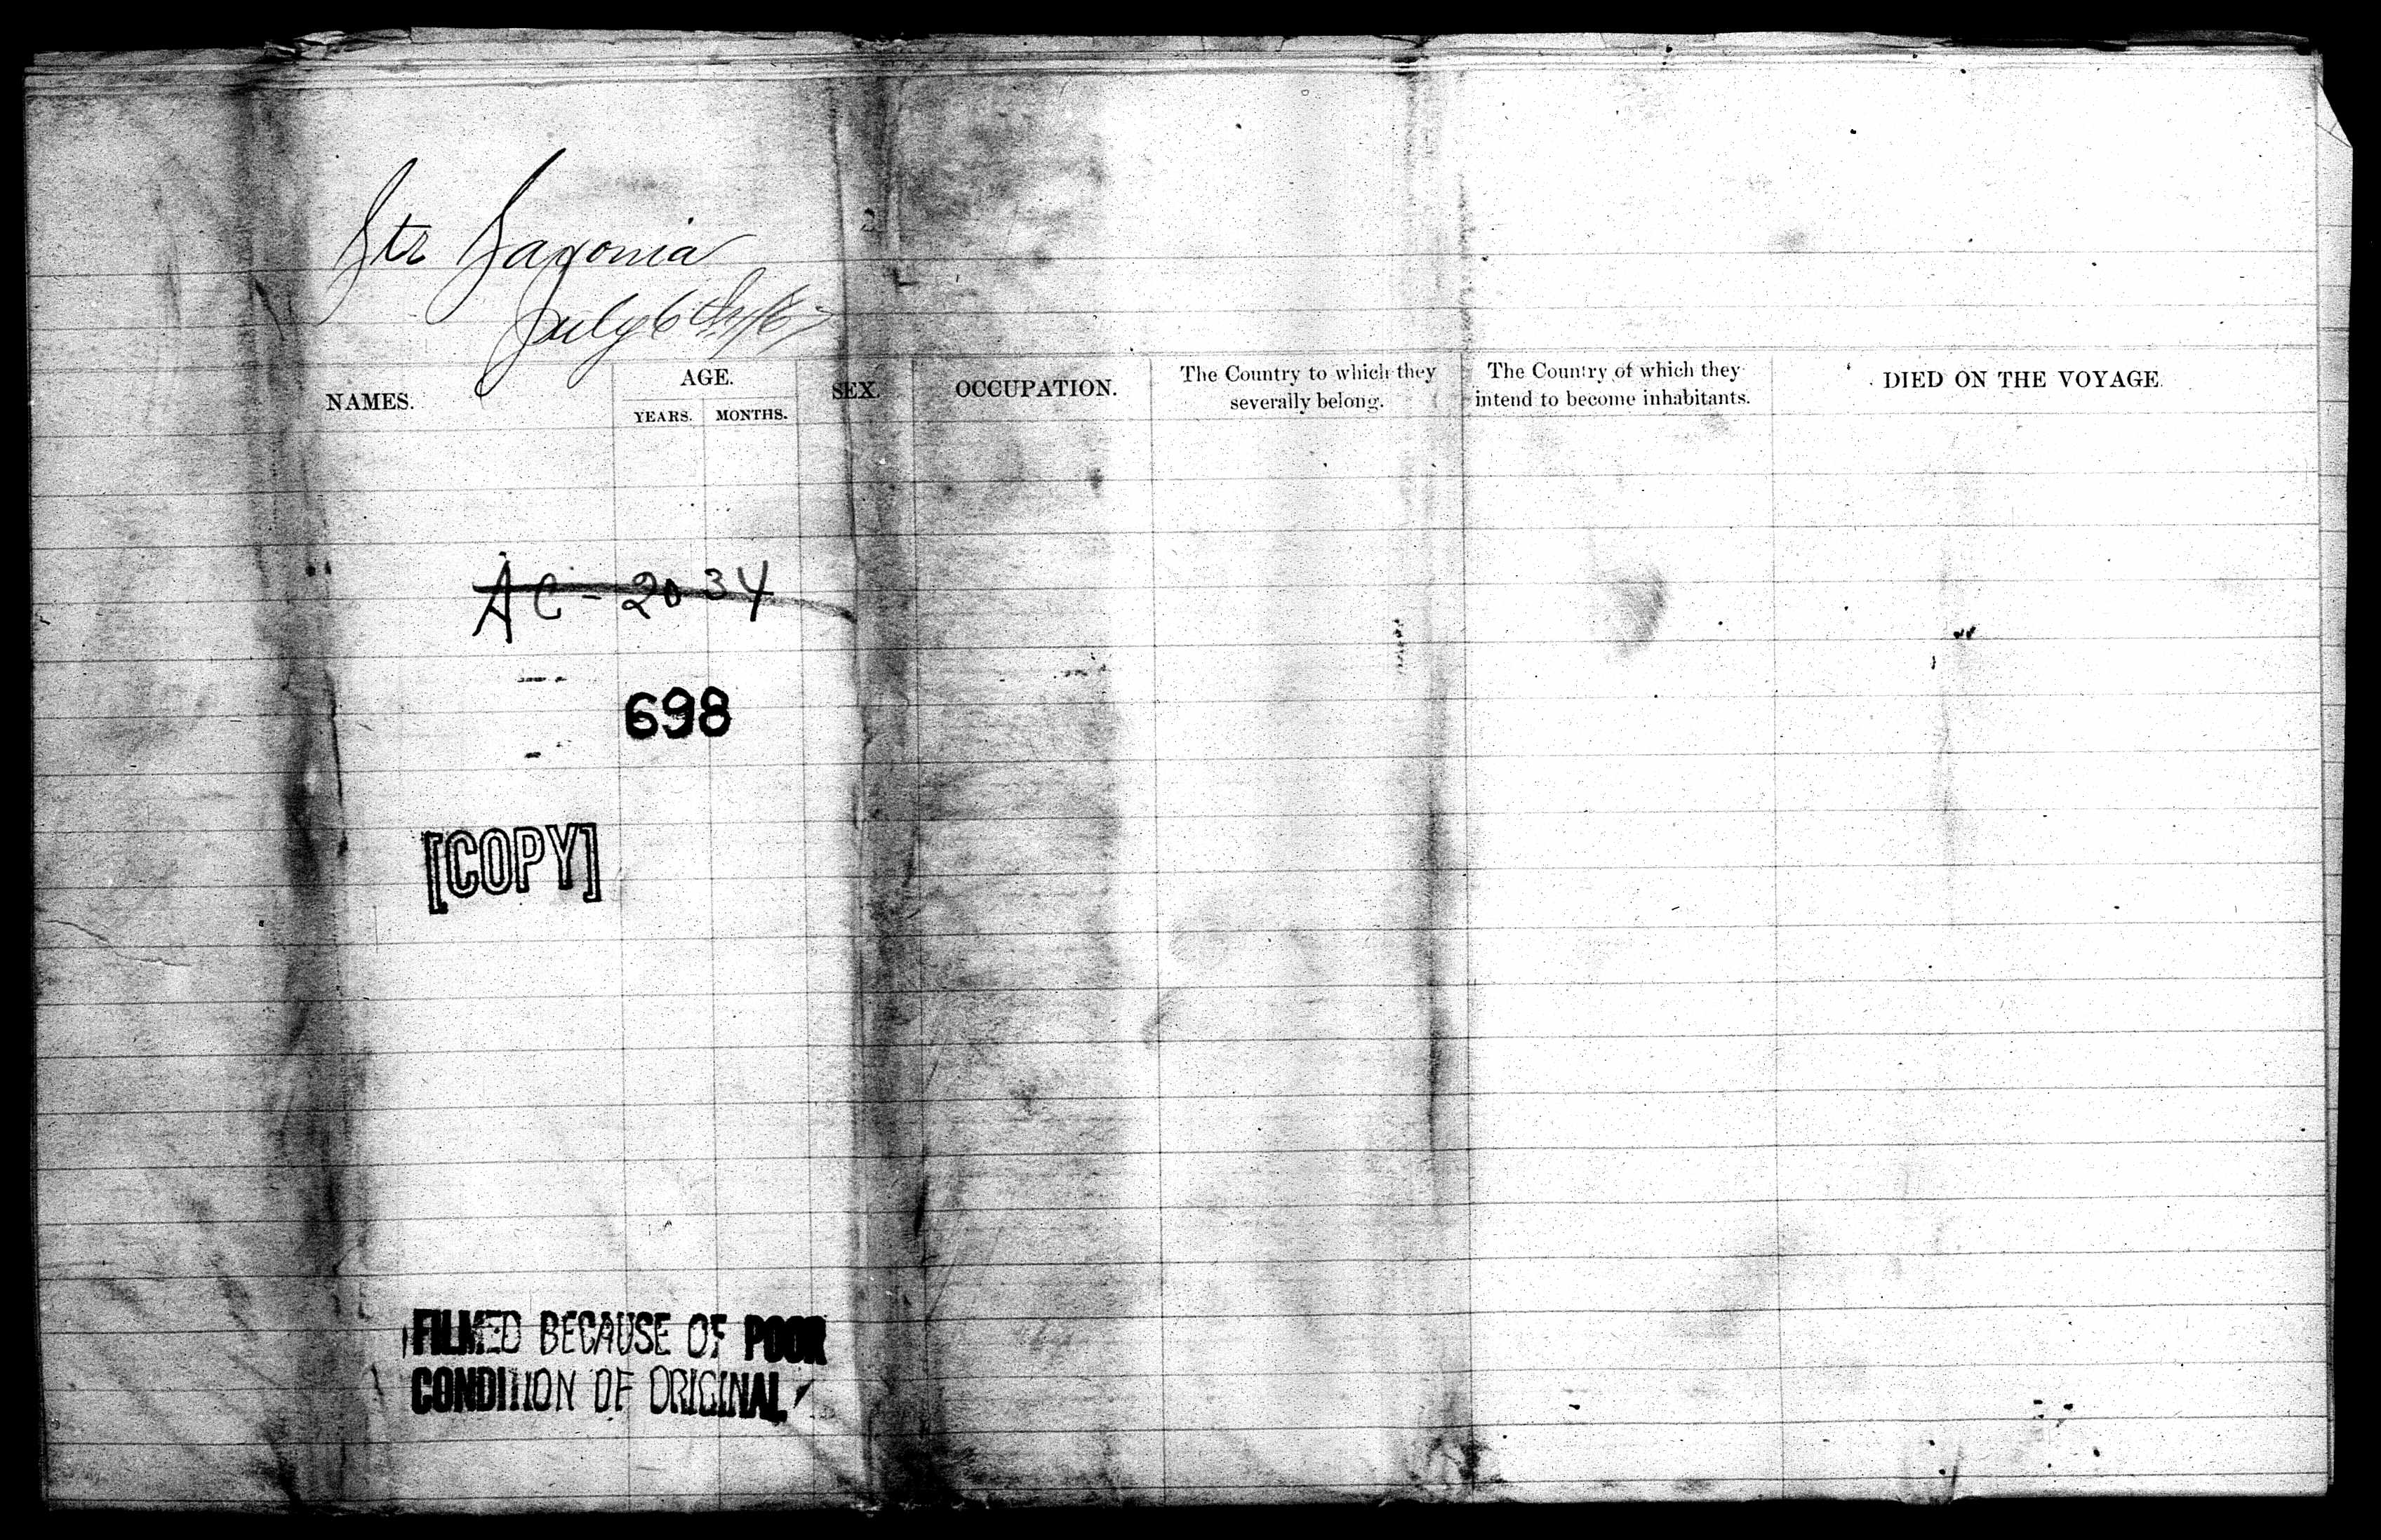 Str Saxonia
July 6th/67
NAMES.
AGE.
YEARS.
MONTHS.
SEX.
OCCUPATION.
The Country to which they
severally belong.
The Country of which they
intend to become inhabitants.
DIED ON THE VOYAGE
AC-2034
698
[COPY]
FILMED BECAUSE OF POOR
CONDITION OF ORIGINAL